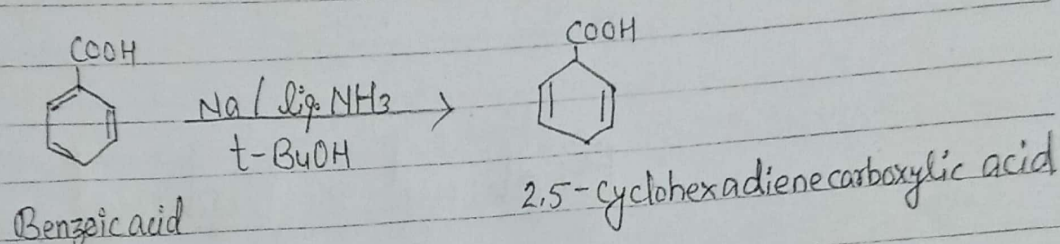 COOH
COOH
Na / liq. NH3
t-BuOH
Benzoic acid
2,5-cyclohexadienecarboxylic acid